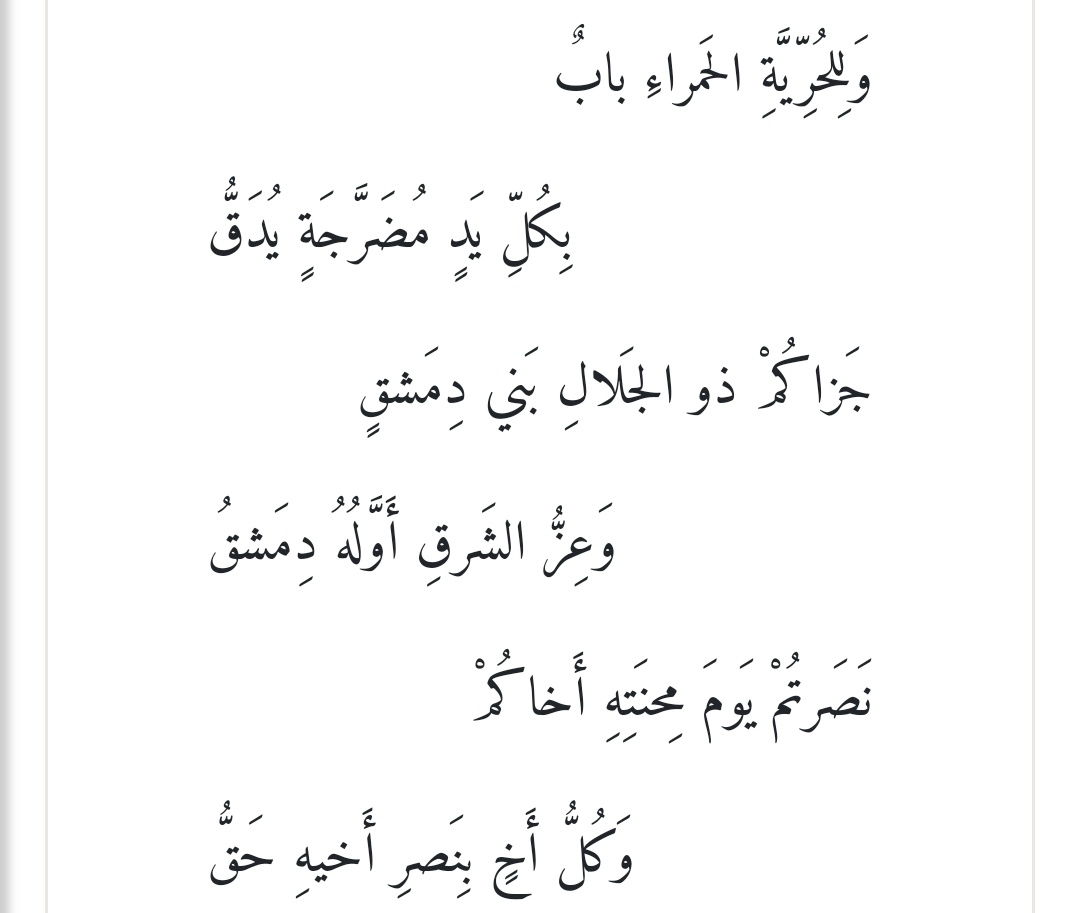 وَلِلحُرِّيَّةِ الحَمراءِ بابٌ
بِكُلِّ يَدٍ مُضَرَّجَةٍ يُدَقُّ
جَزاكُمْ ذو الجَلالِ بَني دِمَشقٍ
وَعِزُّ الشَرقِ أَوَّلُهُ دِمَشقُ
نَصَرتُمْ يَومَ مِحنَتِهِ أَخاكُمْ
وَكُلُّ أَخٍ بِنَصرِ أَخيهِ حَقُّ